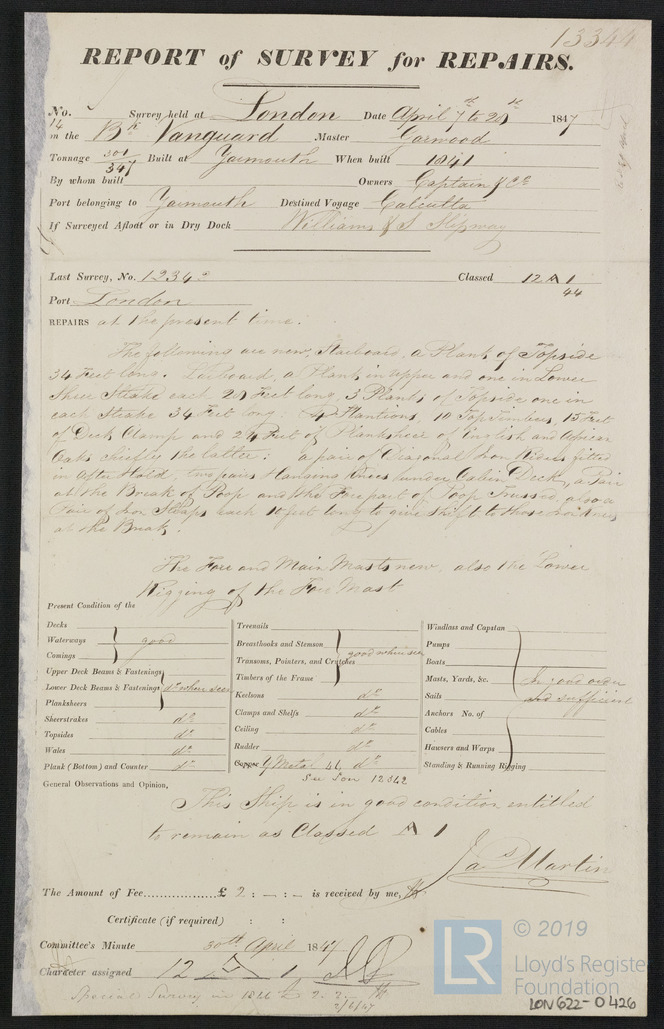 13344
REPORT of SURVEY for REPAIRS.
No. 14 Survey held at London Date April 7th to 28th 1847
on the Bk Vanguard Master Garwood
Tonnage 301/347 Built at Yarmouth When built 1841
By whom built Owners Captain & Co
Port belonging to Yarmouth Destined Voyage Calcutta
If Surveyed Afloat or in Dry Dock Williams & S Slipway
Last Survey, No. 1234 Classed 12 A 1
44
Port London
REPAIRS at the present time.
The following are new, Starboard, a Plank of Topside
34 Feet long. Larboard, a Plank in upper and one in Lower
Sheer Strake each 28 Feet long, 3 Planks of Topside one in
each Strake 34 Feet long 4 Stantions, 10 Top Timbers, 15 Feet
of Deck Clamp and 24 Feet of Planksheer of English and African
Oak chiefly the latter: a pair of Diagonal Iron Riders fitted
in After Hold, two pairs Hanging Knees under Cabin Deck, a Pair
at the Break of Poop and the Forepart of Poop Trussed, also a
Pair of Iron Straps each 10 feet long to give shift to those Iron Knees
at the Break.
The Fore and Main Masts new, also the Lower
Rigging of the Fore Mast
Present Condition of the
Decks
Waterways good
Comings
Upper Deck Beams & Fastenings
Lower Deck Beams & Fastenings do when seen
Planksheers
Sheerstrakes do
Topsides do
Wales do
Plank (Bottom) and Counter do
Treenails
Breasthooks and Stemson
Transoms, Pointers, and Crutches good when seen
Timbers of the Frame
Keelsons do
Clamps and Shelfs do
Ceiling do
Rudder do
Copper Y Metal 46 do
See Lon 12842
Windlass and Capstan
Pumps
Boats
Masts, Yards, &c. In good order
Sails and sufficient
Anchors No. of
Cables
Hawsers and Warps
Standing & Running Rigging
General Observations and Opinion.
This Ship is in good condition entitled
to remain as Classed A 1
Jas Martin
The Amount of Fee £ 2 : - : - is received by me,
Certificate (if required) : :
Committee's Minute 30th April 1847
Character assigned 12 A 1
Special Survey
2/6/47
© 2019
LR
Lloyd's Register
Foundation
LON622-0426